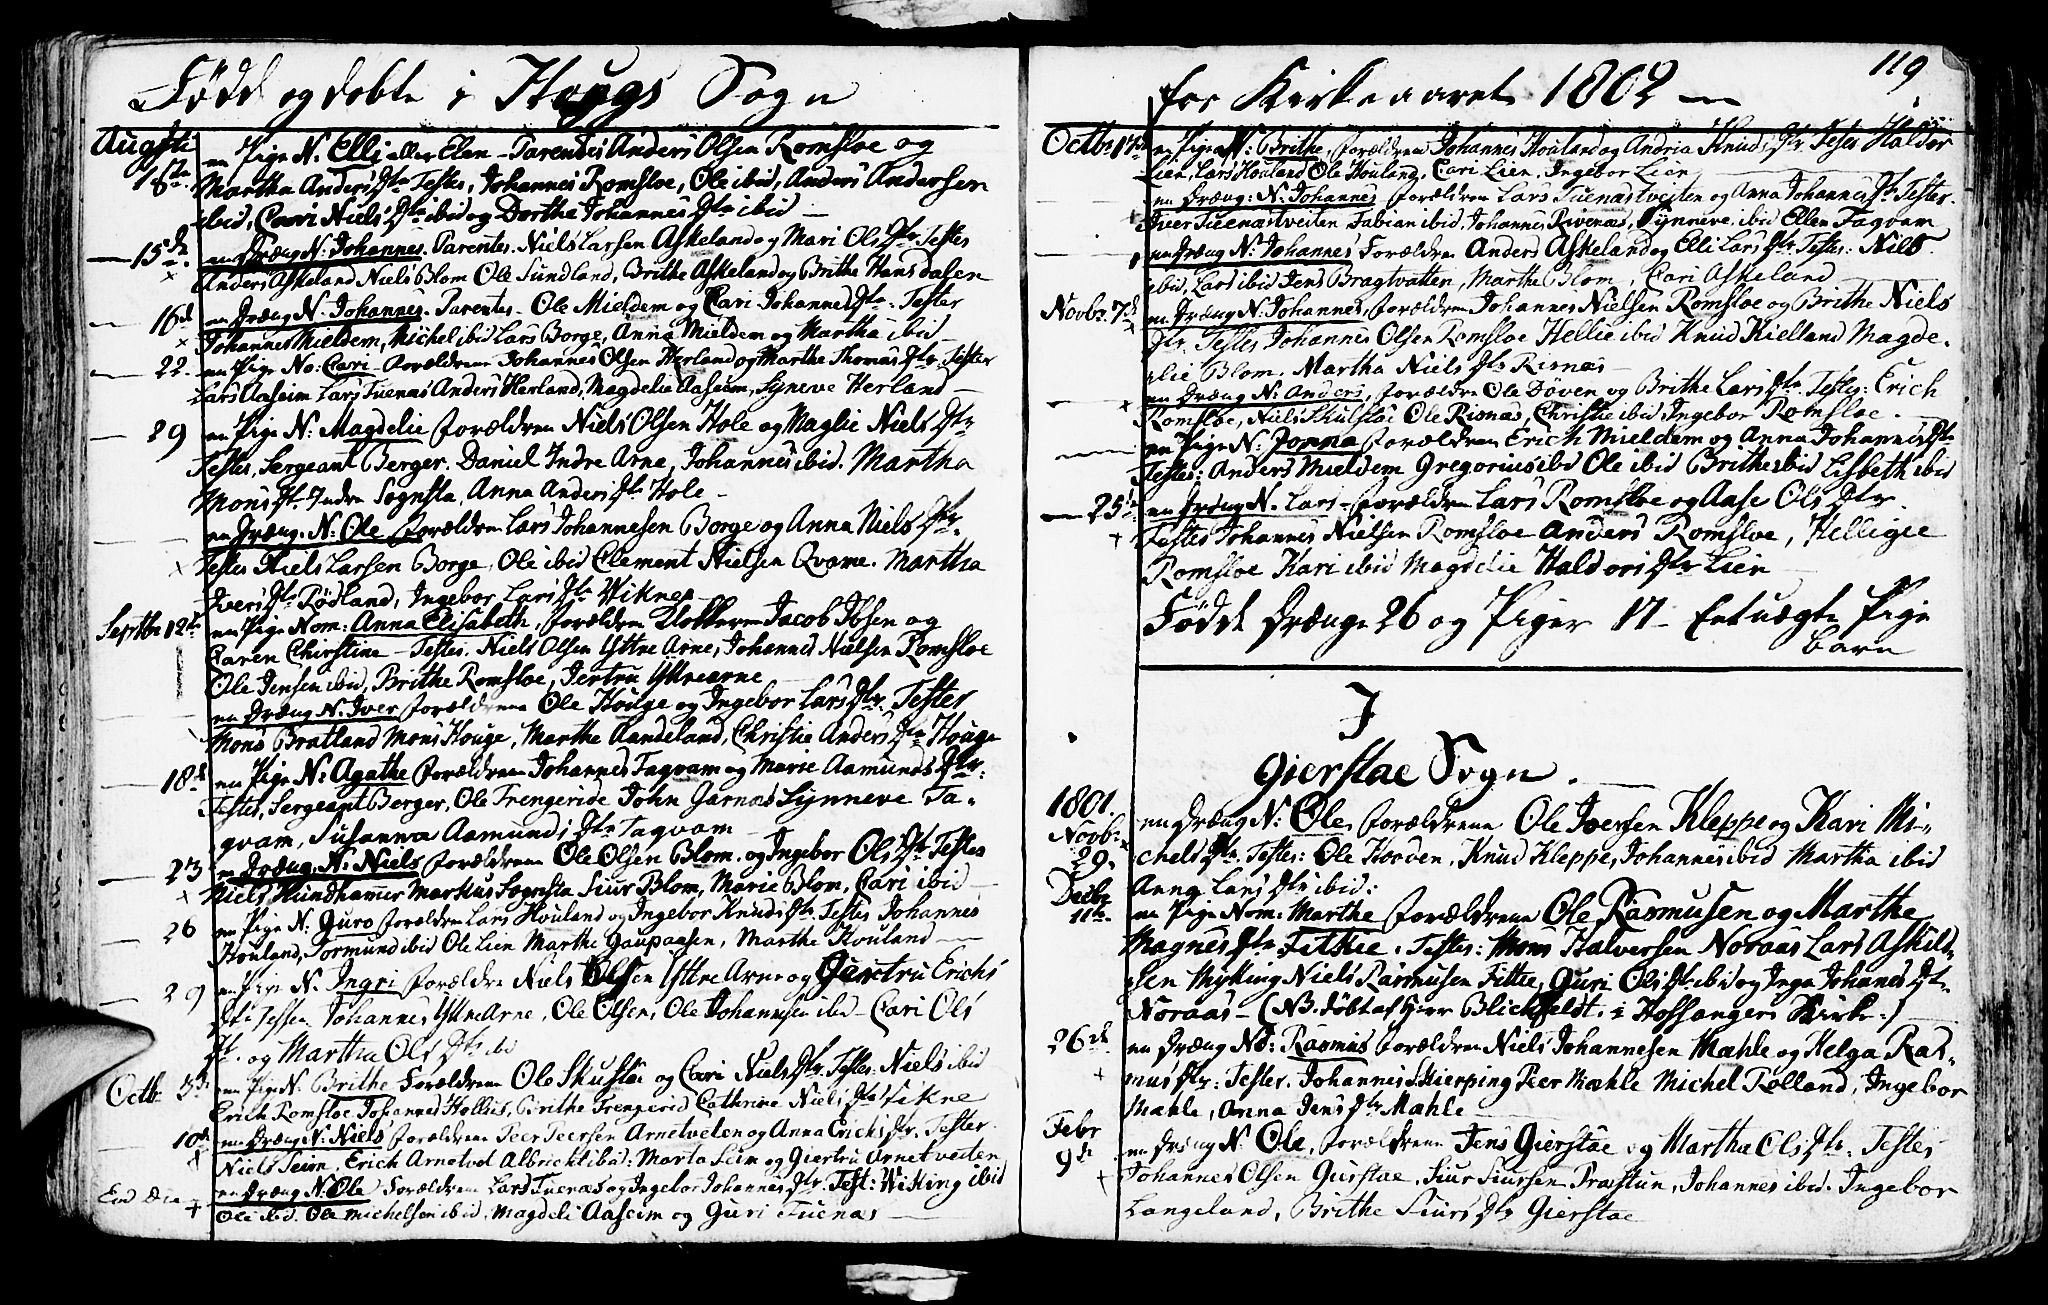 Født og døbte i Hougs Sogn
Augsti en Pige N. Elli eller Elen - Parentes Anders Olsen Romsloe og
Martha Anders Dtr Testes, Johannes Romsloe, Ole ibid, Anders Andersen
ibid, Cari Niels Dtr ibid og Dorthe Johannes Dtr ibid
15de en Dræng N. Johannes. Parentes. Niels Larsen Askeland og Mari Ols Dtr Testes
Anders Askeland Niels Blom Ole Sundland, Brithe Askeland og Brithe Hansdasen
16de en Dræng N. Johannes. Parentes. Ole Mieldem og Cari Johannes Dtr: Testes
Johannes Mieldem, Michel ibid Lars Borge, Anna Mieldem og Martha ibid
22. en Pige No: Cari - Forældrene Johannes Olsen Herland og Marthe Thomas Dtr Testes
Lars Aaseim Lars Tuenæs Anders Herland, Magdelie Aaseim, Syneve Herland
29 en Pige N: Magdelie Forældren Niels Olsen Hole og Maglie Niels Dtr
Testes, Sergeant Berger, Daniel Indre Arne, Johannes ibid. Martha
Mons Dtr Indre Sognsta, Anna Anders Dtr Hole
en Dræng. N: Ole Forældren Lars Johannesen Borge og Anna Niels Dtr.
Testes Niels Larsen Borge, Ole ibid Clement Nielsen Qvame. Martha
Ivers Dtr Rødland, Ingebor Lars Dtr Wiknes
Septbr 12te en Pige Nom: Anna Elisabeth, Forældren Klokkeren Jacob Ibsen og
Caren Christine - Testes. Niels Olsen Yttre Arne, Johannes Nielsen Romsloe
Ole Jensen ibid, Brithe Romsloe, Jertru Yttrearne
en Dræng N. Iver Forældrene Ole Houge og Ingebor Lars Dtr Testes
Mons Bratland Mons Houge, Marthe Aandeland, Christie Anders Dtr Houge
18de en Pige N: Agathe Forældren Johannes Tagvam og Marie Aamunds Dtr:
Testes, Sergeant Berger, Ole Frengeride John Garnæs Synneve Ta-
gvam, Susanna Aamunds Dtr Tagvam
23 en Dræng N: Niels Forældrene Ole Olsen Blom og Ingebor Ols Dtr Testes
Niels Hundhamer Markus Sognsta Siur Blom, Marie Blom, Cari ibid
26 en Pige N: Guro Forældren Lars Houland og Ingebor Knuds Dtr Testes Johannes
Houland, Tormund ibid Ole Lien Marthe Gaupaasen, Marthe Houland
29 en Pige N: Ingri Forældre Niels Olsen Yttre Arne og Giertru Erichs
Dtr Testes Johannes Yttre Arne, Ole Olsen, Ole Johannesen ibid - Cari Ols
Dtr. og Martha Ols Dtr ibid
Octb: 3de en Pige N: Brithe Forældrene Ole Skulstæ og Cari Niels Dtr Testes: Niels ibid
Erich Romsloe Johannes Hollius, Brithe Frengerid Cathrine Niels Dtr Vikne
10de en Dræng N: Niels Forældren Peer Peersen Arnetveten og Anna Erichs Dtr. Testes
Niels Seim, Erich Arnetvet Albricht ibid: Marta Seim og Giertru Arnetveiten
Eod die en Dræng N. Ole Forældren Lars Tuenæs og Ingebor Johannes Dtr. Test: Wiking ibid
Ole ibid. Ole Michelsen ibid. Magdeli Aaseim og Guri Tuenæs
for Kirkeaaret 1802
119
Octbr 17de en Pige N: Brithe, Forældren Johannes Houland og Andria Knuds Dtr Testes Haldor
Lien, Lars Houland Ole Houland, Cari Lien, Ingebor Lien
en Dræng: N: Johannes Forældren Lars Tuenæstveiten og Anna Johannes Dtr Testes.
Iver Tuenæstveiten Fabian ibid, Johannes Rivenæs, Synneve ibid Ellen Tagvam
en Dræng N: Johannes Forældren Anders Askeland og Elli Lars Dtr Testes: Niels
ibid, Lars ibid Jens Bragtvatten, Marthe Blom, Cari Askeland
Novbr: 7de en Dræng N: Johannes, Forældren Johannes Nielsen Romsloe og Brithe Niels
Dtr. Testes Johannes Olsen Romsloe Hellie ibid Knud Kielland Magde-
lie Blom. Martha Niels Dtr Risnæs
en Dræng N: Anders, Forældre Ole Døven og Brithe Lars Dtr. Testes: Erich
Romsloe, Niels Skulstæ Ole Risnæs, Christie ibid Ingebor Romsloe.
en Pige N: Jonna Forældren Erich Mieldem og Anna Johannes Dtr
Testes: Anders Mieldem Gregorius ibid Ole ibid Brithe ibid Lisbeth ibid
25de en Dræng N. Lars - Forældren Lars Romsloe og Aase Ols Dtr
Testes Johannes Nielsen Romsloe Anders Romsloe, Helligie
Romsloe Kari ibid Magdelie Haldors Dtr Lien
Fødde Drænge 26 og Piger 17 - Et uægte Pige
barn
I
Gierstae Sogn.
1801.
Novb: 29. en Dræng N: Ole. Forældrene Ole Iversen Kleppe og Kari Mi-
chels Dtr. Testes: Ole Hovden, Knud Kleppe, Johannes ibid Martha ibid
Anna Lars Dtr ibid:
Decbr 11te en Pige Nom: Marthe Forældrene Ole Rasmusen og Marthe
Magnes Dtr Fitkie. Testes: Mons Halversen Noraas Lars Askild-
sen Mykking Niels Rasmusen Fitte, Guri Ols Dtr ibid og Inga Johannes Dt-
Noraas - (NB. døbt af Herr Blichfeldt i Hossangers Kirke:)
26de en Dræng No: Rasmus Forældren Niels Johannesen Mæhle og Helga Ras-
mus Dtr: Testes. Johannes Skierping Peer Mæhle Michel Rølland, Ingebor
Mæhle, Anna Jens Dtr Mæhle
Febr 9de en Dræng N: Ole, Forældrene Jens Gierstae og Martha Ols Dtr. Testes
Johannes Olsen Gierstae, Siur Siursen Præstun, Johannes ibid. Ingebor
Langeland, Brithe Siurs Dtr Gierstae